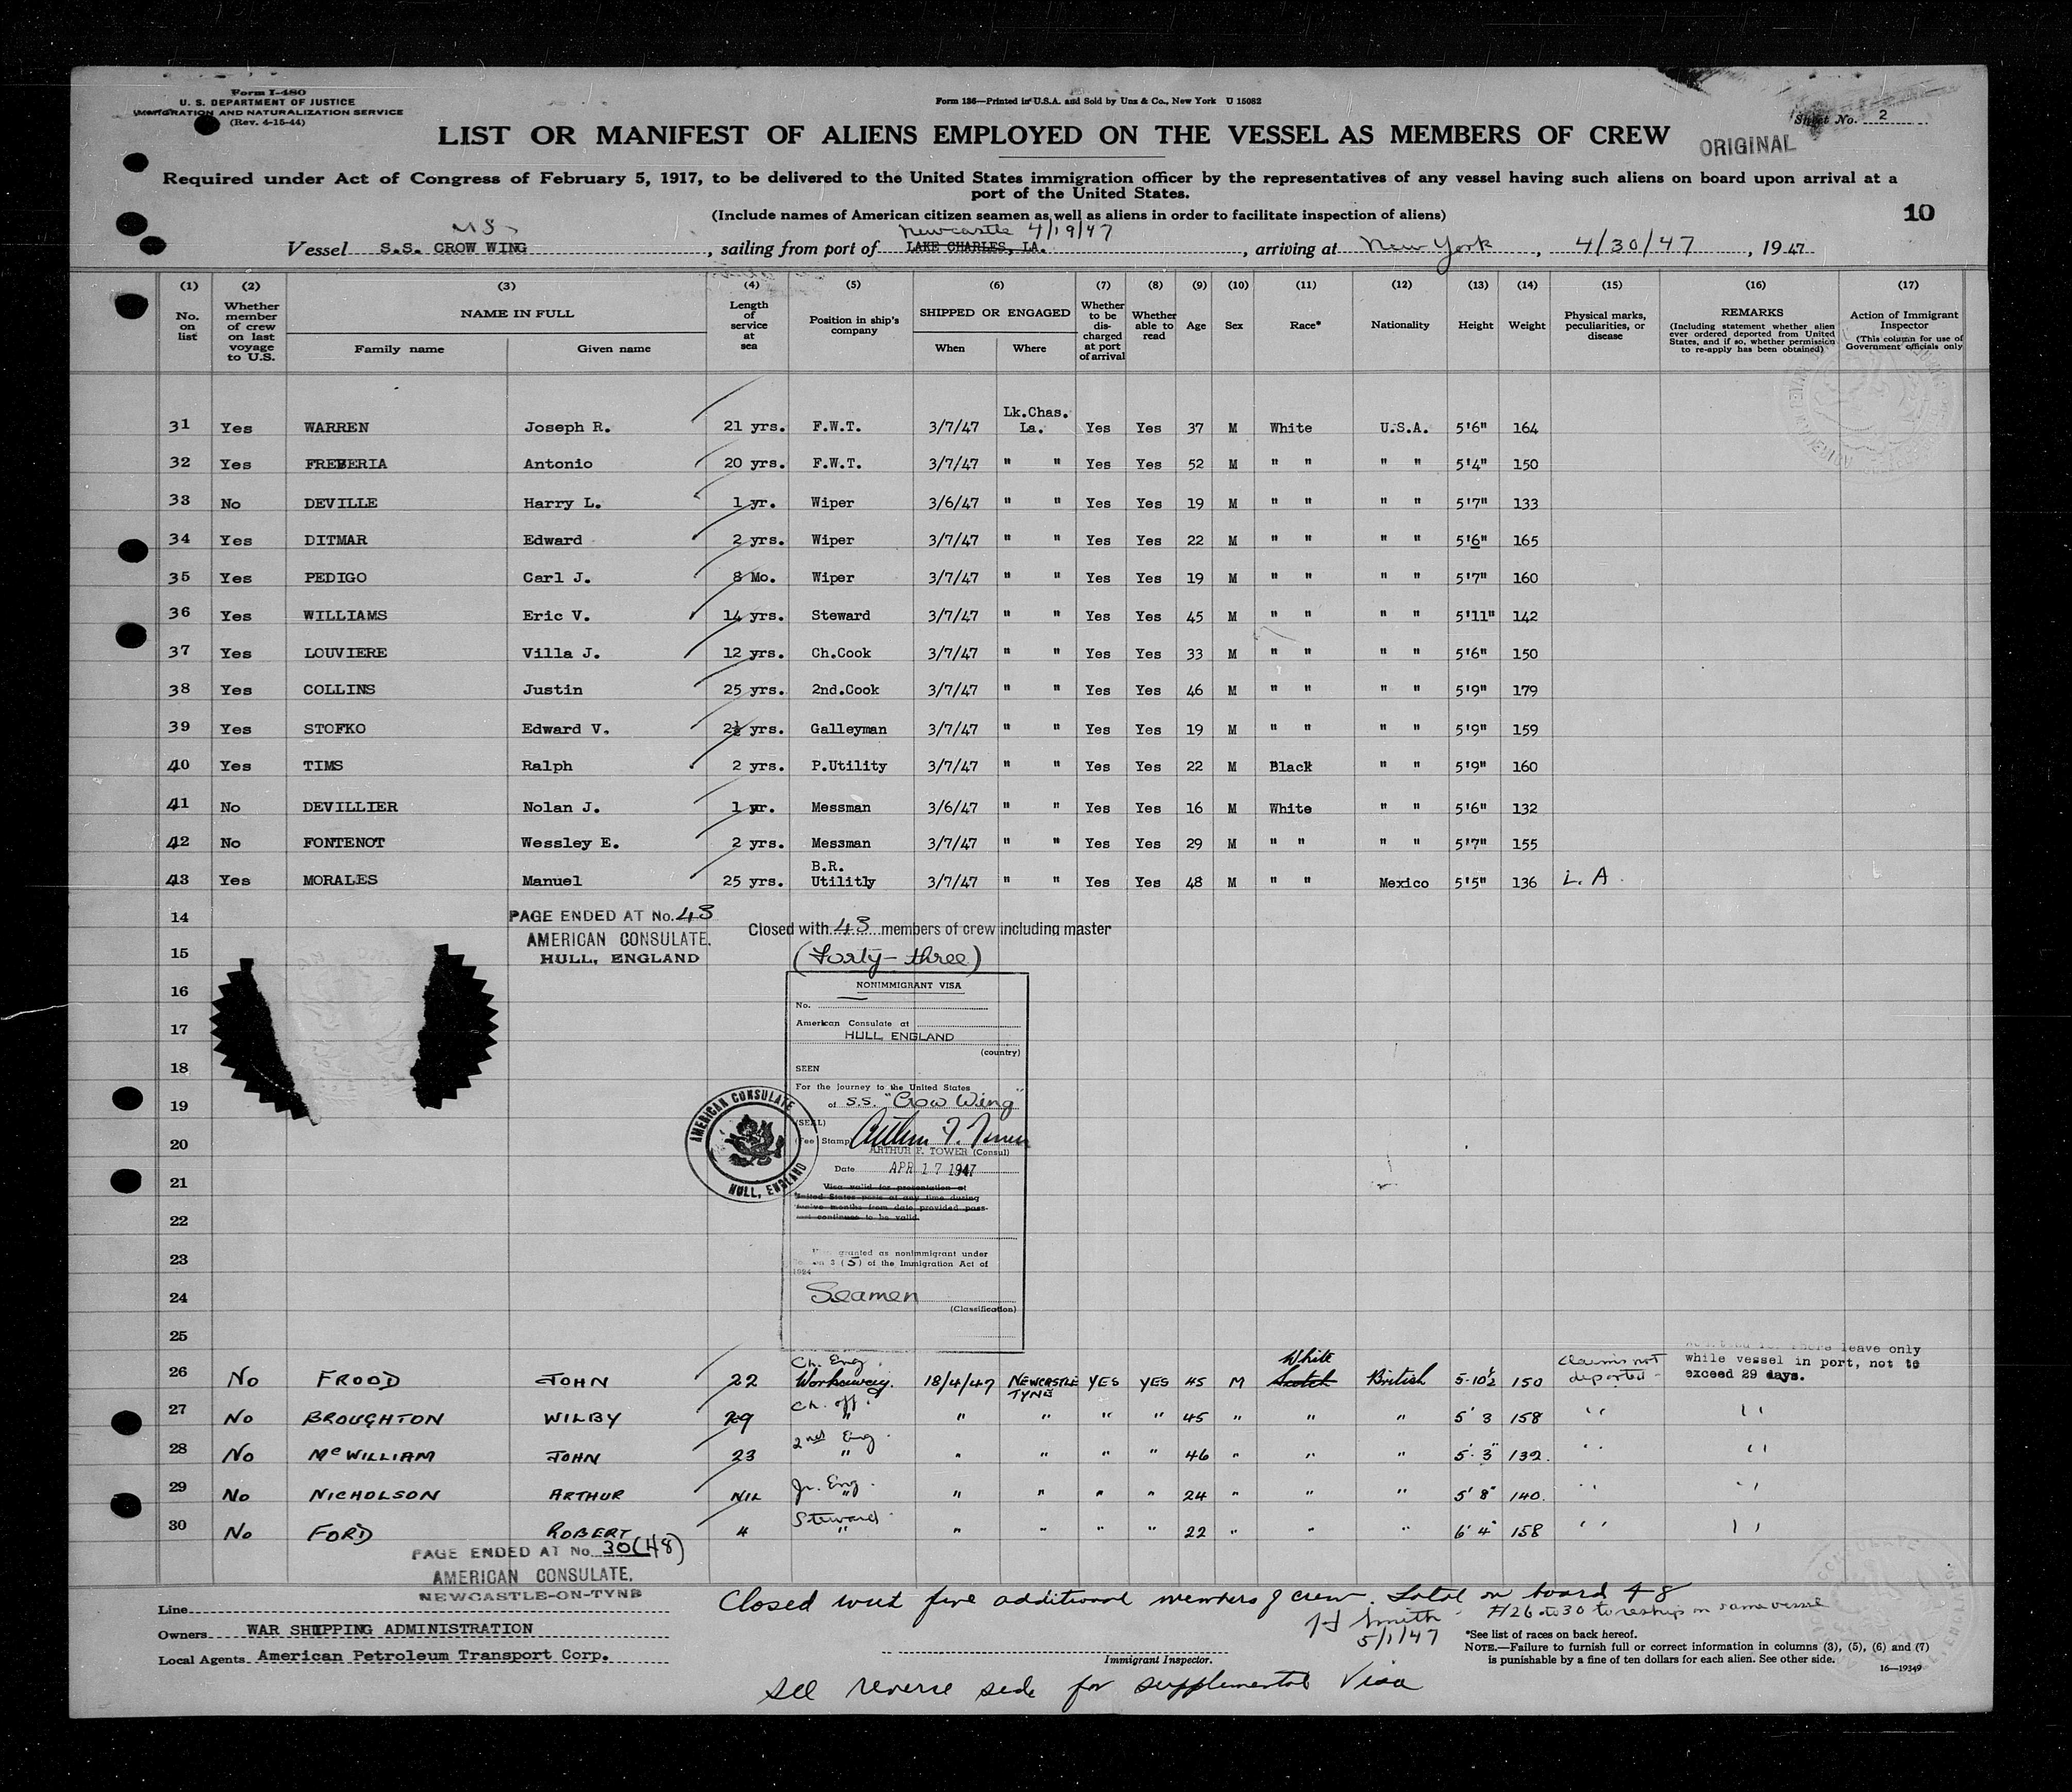 Form I-480
U. S. DEPARTMENT OF JUSTICE
IMMIGRATION AND NATURALIZATION SERVICE
(Rev. 4-15-44)
Form 136—Printed in U.S.A. and Sold by Unz & Co., New York U 15082
Sheet No. 2
LIST OR MANIFEST OF ALIENS EMPLOYED ON THE VESSEL AS MEMBERS OF CREW
ORIGINAL
Required under Act of Congress of February 5, 1917, to be delivered to the United States immigration officer by the representatives of any vessel having such aliens on board upon arrival at a
port of the United States.
(Include names of American citizen seamen as well as aliens in order to facilitate inspection of aliens)
10
Newcastle 4/19/47
Vessel S.S. CROW WING, sailing from port of LAKE CHARLES, LA., arriving at New York, 4/30/47, 1947
(1) (2) (3) (4) (5) (6) (7) (8) (9) (10) (11) (12) (13) (14) (15) (16) (17)
No. on list
Whether member of crew on last voyage to U.S.
NAME IN FULL
Family name Given name
Length of service at sea
Position in ship's company
SHIPPED OR ENGAGED
When Where
Whether to be discharged at port of arrival
Whether able to read
Age
Sex
Race*
Nationality
Height
Weight
Physical marks, peculiarities, or disease
REMARKS
(Including statement whether alien ever ordered deported from United States, and if so, whether permission to re-apply has been obtained)
Action of Immigrant Inspector
(This column for use of Government officials only
Lk.Chas.
31 Yes WARREN Joseph R. 21 yrs. F.W.T. 3/7/47 La. Yes Yes 37 M White U.S.A. 5'6" 164
32 Yes FREBERIA Antonio 20 yrs. F.W.T. 3/7/47 " " Yes Yes 52 M " " " " 5'4" 150
33 No DEVILLE Harry L. 1 yr. Wiper 3/6/47 " " Yes Yes 19 M " " " " 5'7" 133
34 Yes DITMAR Edward 2 yrs. Wiper 3/7/47 " " Yes Yes 22 M " " " " 5'6" 165
35 Yes PEDIGO Carl J. 8 Mo. Wiper 3/7/47 " " Yes Yes 19 M " " " " 5'7" 160
36 Yes WILLIAMS Eric V. 14 yrs. Steward 3/7/47 " " Yes Yes 45 M " " " " 5'11" 142
37 Yes LOUVIERE Villa J. 12 yrs. Ch.Cook 3/7/47 " " Yes Yes 33 M " " " " 5'6" 150
38 Yes COLLINS Justin 25 yrs. 2nd.Cook 3/7/47 " " Yes Yes 46 M " " " " 5'9" 179
39 Yes STOFKO Edward V. 2½ yrs. Galleyman 3/7/47 " " Yes Yes 19 M " " " " 5'9" 159
40 Yes TIMS Ralph 2 yrs. P.Utility 3/7/47 " " Yes Yes 22 M Black " " 5'9" 160
41 No DEVILLIER Nolan J. 1 yr. Messman 3/6/47 " " Yes Yes 16 M White " " 5'6" 132
42 No FONTENOT Wessley E. 2 yrs. Messman 3/7/47 " " Yes Yes 29 M " " " " 5'7" 155
B.R.
43 Yes MORALES Manuel 25 yrs. Utilitly 3/7/47 " " Yes Yes 48 M " " Mexico 5'5" 136 L. A.
14 PAGE ENDED AT No. 43
Closed with 43 members of crew including master
AMERICAN CONSULATE.
15 HULL, ENGLAND
(Forty-three)
16 NONIMMIGRANT VISA
No.
17 American Consulate at
HULL ENGLAND
(country)
18 SEEN
For the journey to the United States
19 of S.S. "Crow Wing"
(SEAL)
20 (Fee Stamp)
ARTHUR F. TOWER (Consul)
Date APR 17 1947
AMERICAN CONSULATE
HULL, ENGLAND
21 Visa valid for presentation at
United States ports at any time during
twelve months from date provided pass-
port continues to be valid.
22
23 granted as nonimmigrant under
3 (5) of the Immigration Act of
1924
24 Seamen
(Classification)
25
leave only
while vessel in port, not to
exceed 29 days.
Ch. Eng. White
26 No FROOD JOHN 22 Workaway. 18/4/47 NEWCASTLE TYNE YES YES 45 M Scotch British 5-10½ 150 Claims not deported -
Ch. off.
27 No BROUGHTON WILBY 29 " " " " " 45 " " " 5' 3 158 " "
2nd Eng.
28 No McWILLIAM JOHN 23 " " " " " 46 " " " 5' 3" 132. " "
Jr. Eng.
29 No NICHOLSON ARTHUR NIL " " " " " 24 " " " 5' 8" 140. " "
Steward
30 No FORD ROBERT 4 " " " " " 22 " " " 6' 4" 158 " "
PAGE ENDED AT No. 30(48)
AMERICAN CONSULATE.
NEWCASTLE-ON-TYNE
Closed with five additional members of crew. Total on board 48
#26 to 30 to reship on same vessel
Smith
5/1/47
Line
Owners WAR SHIPPING ADMINISTRATION
Local Agents American Petroleum Transport Corp.
Immigrant Inspector.
*See list of races on back hereof.
NOTE.—Failure to furnish full or correct information in columns (3), (5), (6) and (7)
is punishable by a fine of ten dollars for each alien. See other side.
16—19349
See reverse side for supplemental Visa